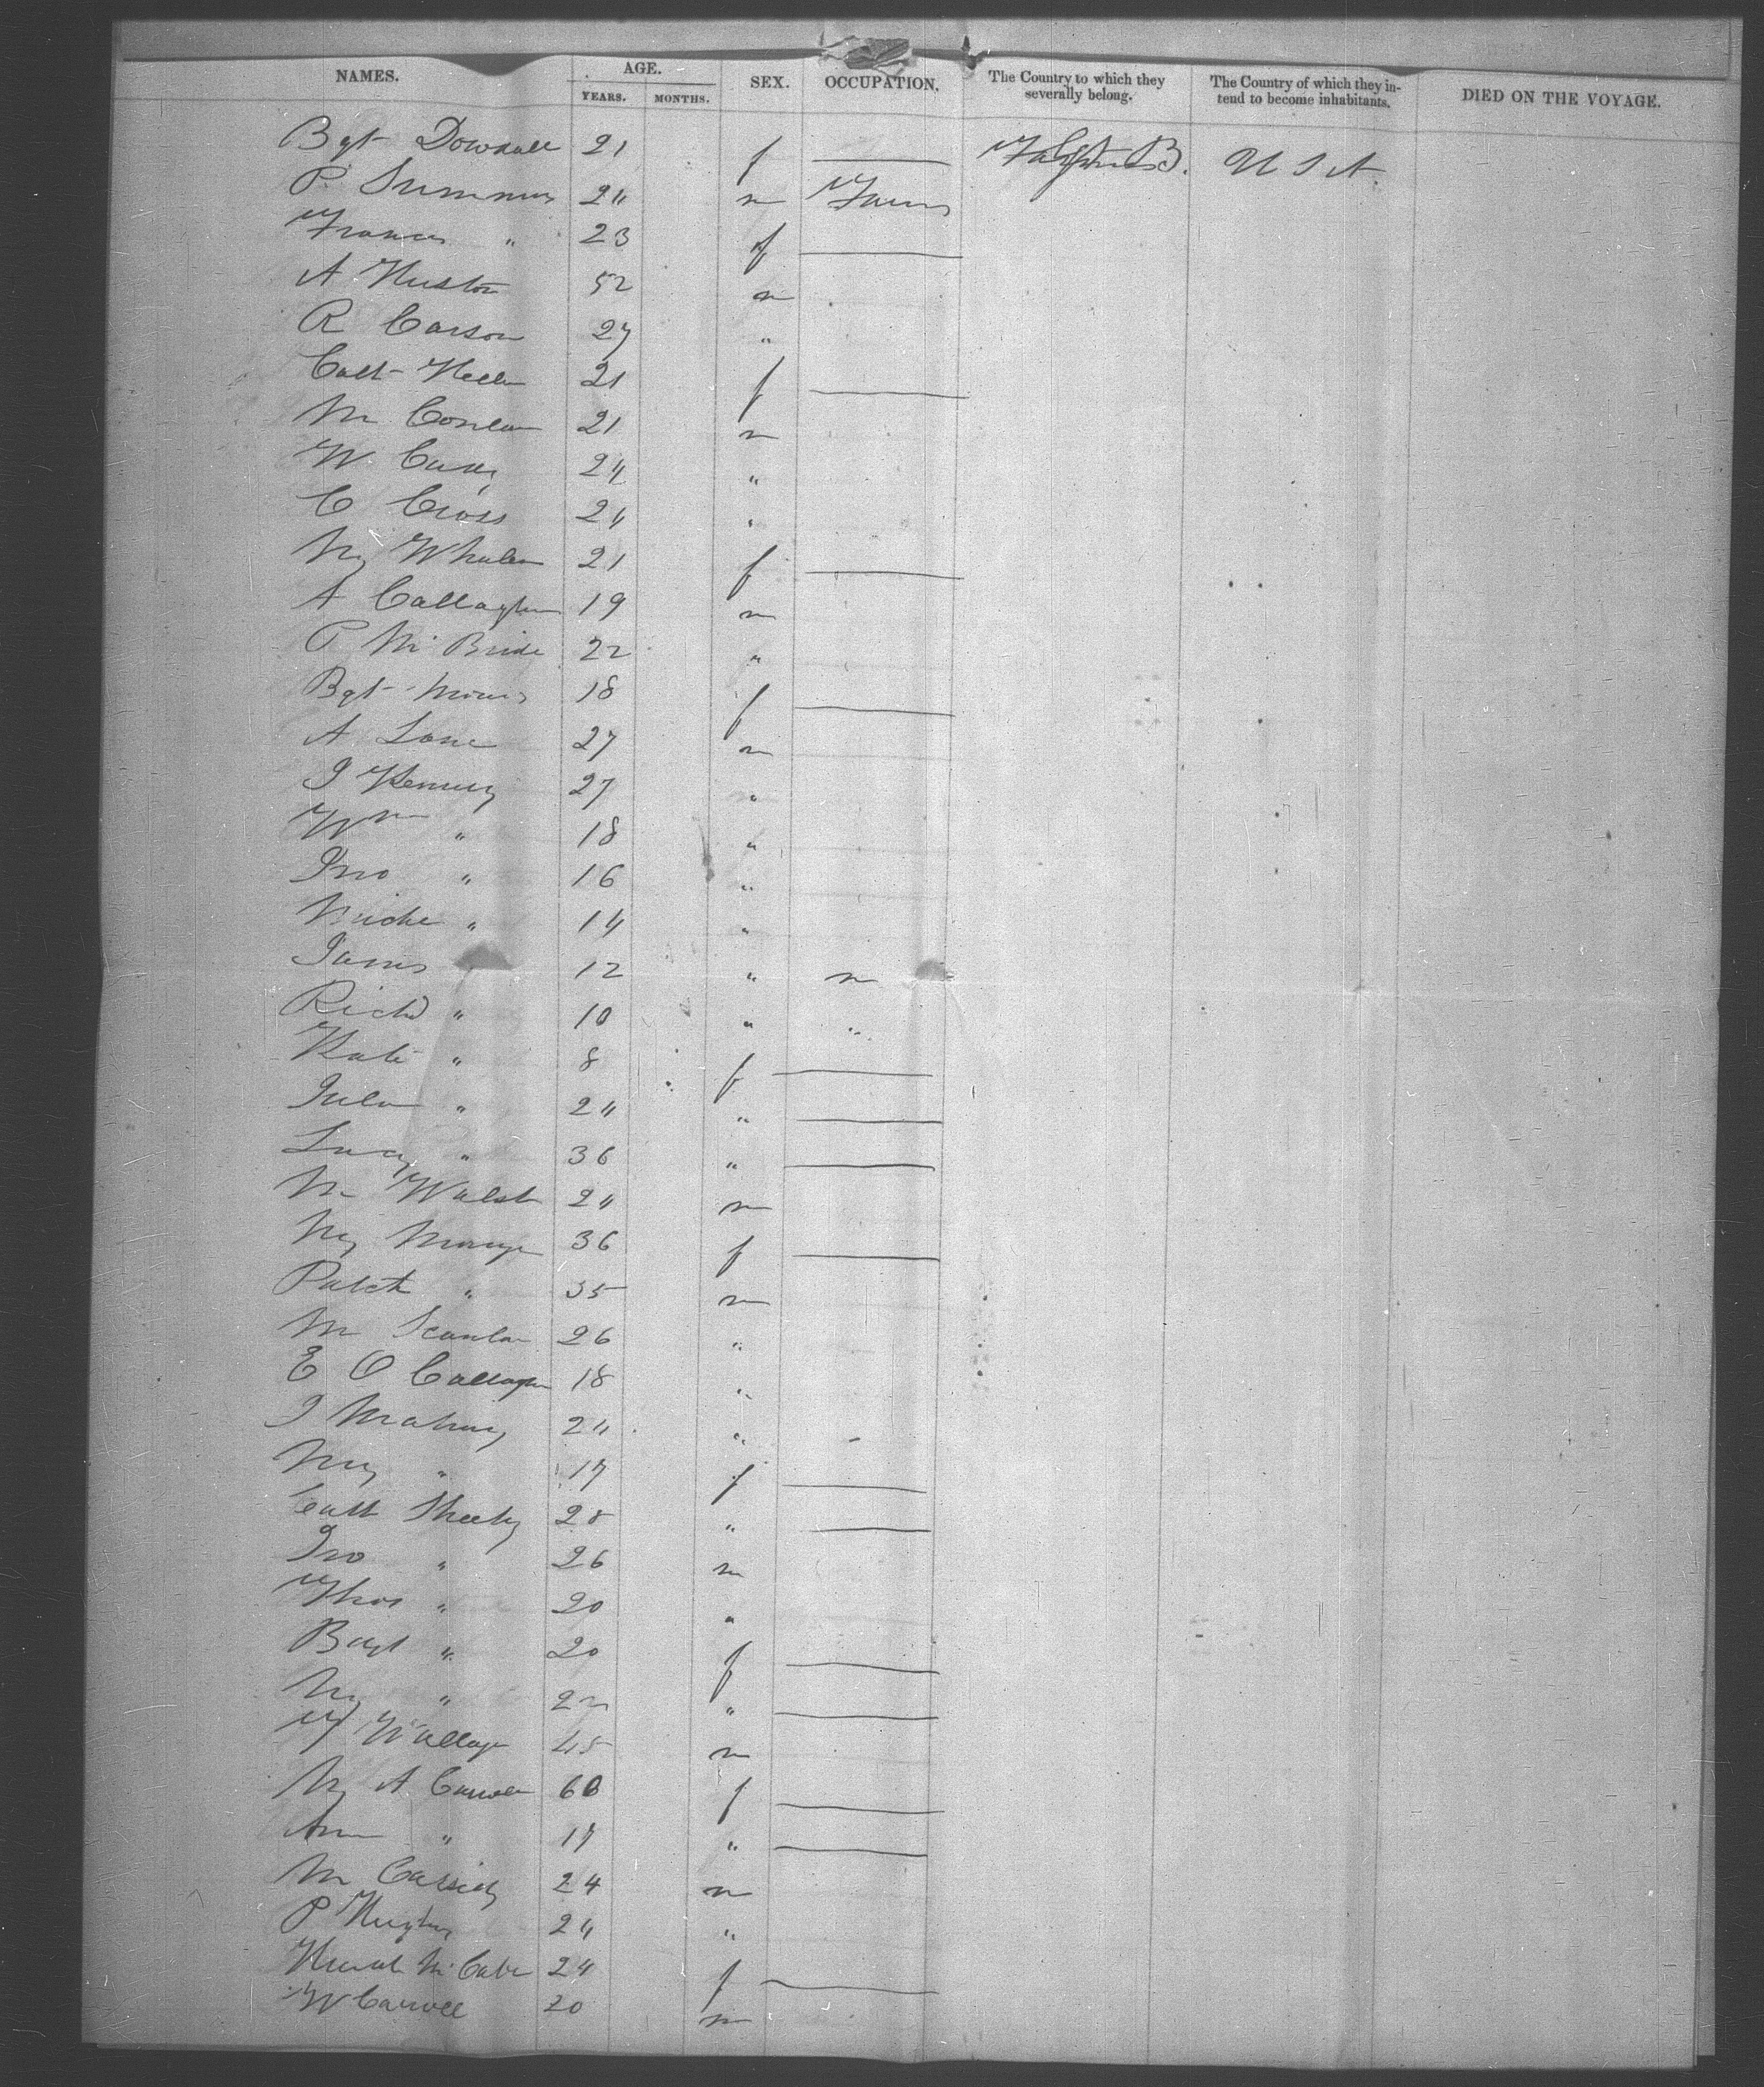 NAMES. AGE. SEX. OCCUPATION. The Country to which they severally belong. The Country of which they intend to become inhabitants. DIED ON THE VOYAGE.
YEARS. MONTHS.
Bgt Dowdall 21 f U S A
P. Summers 24 m Farmr
Frances " 23 f
A Huston 52 m
R Carson 27 "
Cath 21 f
M Conlan 21 m
W. 24 "
C Cross 24 "
My Whalen 21 f
A Callaghan 19 m
P McBride 22 "
Bgt Morris 18 f
A Lane 27 m
J Kenny 27 "
Wm " 18 "
Jno " 16 "
Miche " 14 "
James 12 " m
Richd " 10 " "
Kate " 8 f
Julia " 24 "
Lucy " 36 "
M Walsh 24 m
My 36 f
Patck " 35 m
M Scanlan 26 "
E O Callaghan 18 "
J Mahony 24 "
My " 17 f
Cath Sheehy 28 "
Jno " 26 m
Thos " 20 "
Bdgt " 20 f
My " 22 "
45 m
My A Carroll 60 f
Ann " 17 "
M Cassidy 24 m
P Hughes 24 "
McCabe 24 f
W Carroll 20 m